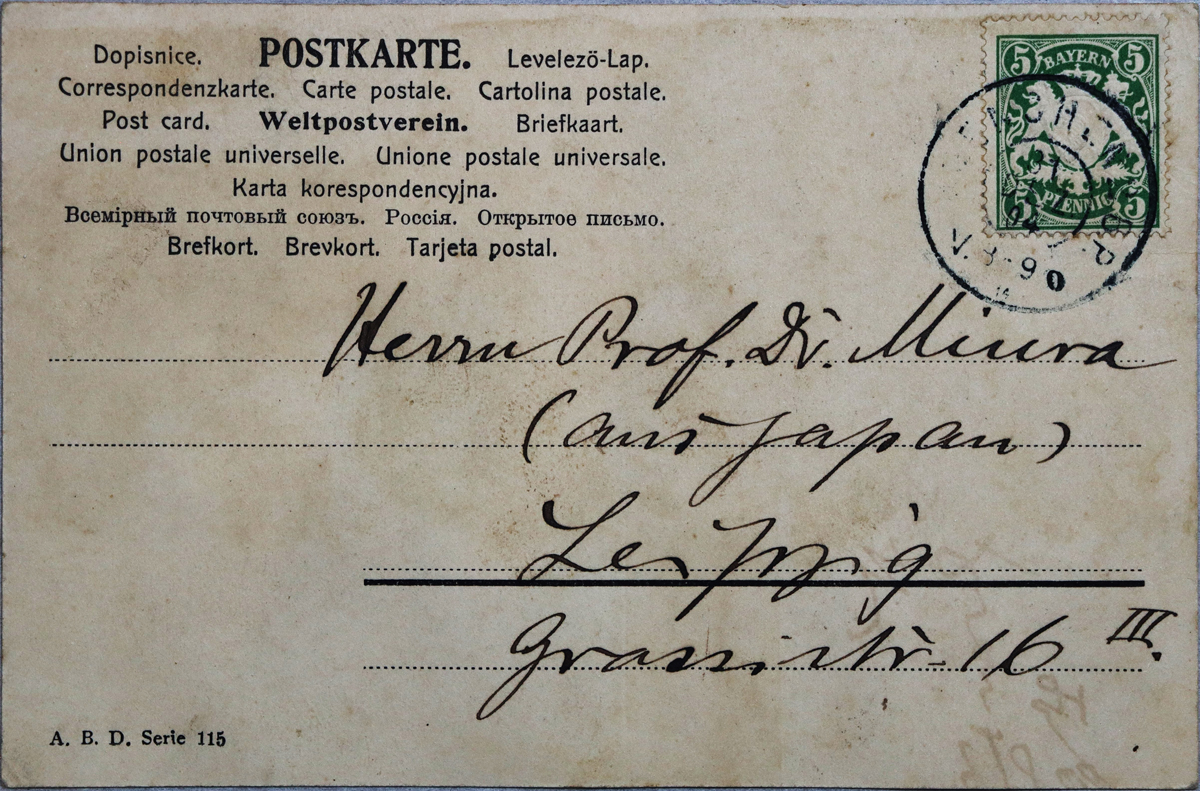 Dopisnice. POSTKARTE. Levelezö-Lap.
Correspondenzkarte. Carte postale. Cartolina postale.
Post card. Weltpostverein. Briefkaart.
Union postale universelle. Unione postale universale.
Karta korespondencyjna.
Всемірный почтовый союзъ. Россія. Открытое письмо.
Brefkort. Brevkort. Tarjeta postal.
5 BAYERN 5
5 PFENNIG 5
V. 8-9 0
Herrn Prof. Dr. Miura
(aus Japan)
Leipzig
Grassistr. 16 III.
A. B. D. Serie 115